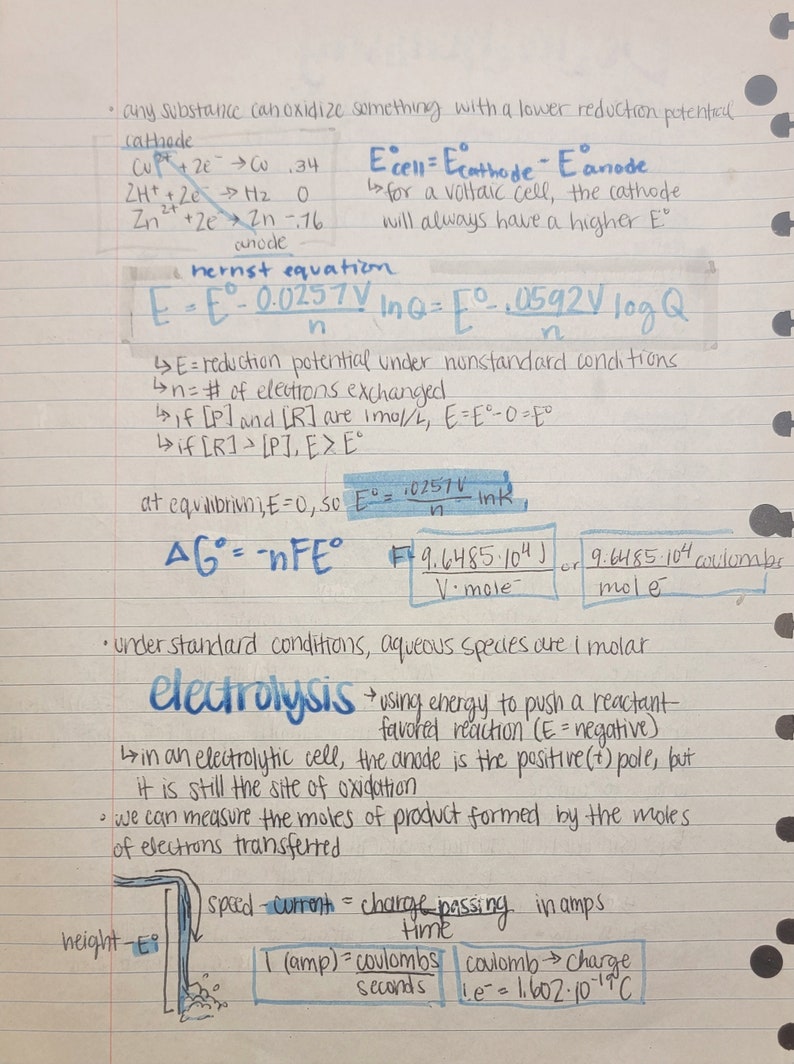 • any substance can oxidize something with a lower reduction potential
cathode
Cu²⁺ + 2e⁻ → Cu .34
2H⁺ + 2e⁻ → H2 0
Zn²⁺ + 2e⁻ → Zn -.76
anode
E°cell = E°cathode - E°anode
↳ for a voltaic cell, the cathode
will always have a higher E°
nernst equation
E = E° - 0.0257V/n ln Q = E° - .0592V/n log Q
↳ E = reduction potential under nonstandard conditions
↳ n = # of electrons exchanged
↳ if [P] and [R] are 1mol/L, E = E° - 0 = E°
↳ if [R] > [P], E > E°
at equilibrium, E = 0, so E° = .0257V/n ln K
ΔG° = -nFE° F = 9.6485·10⁴ J/V·mol e⁻ or 9.6485·10⁴ coulombs/mol e⁻
• under standard conditions, aqueous species are 1 molar
electrolysis → using energy to push a reactant-
favored reaction (E = negative)
↳ in an electrolytic cell, the anode is the positive (+) pole, but
it is still the site of oxidation
• we can measure the moles of product formed by the moles
of electrons transferred
speed - current = charge passing/time in amps
height - E°
1 (amp) = coulombs/seconds
coulomb → charge
1 e⁻ = 1.602·10⁻¹⁹ C